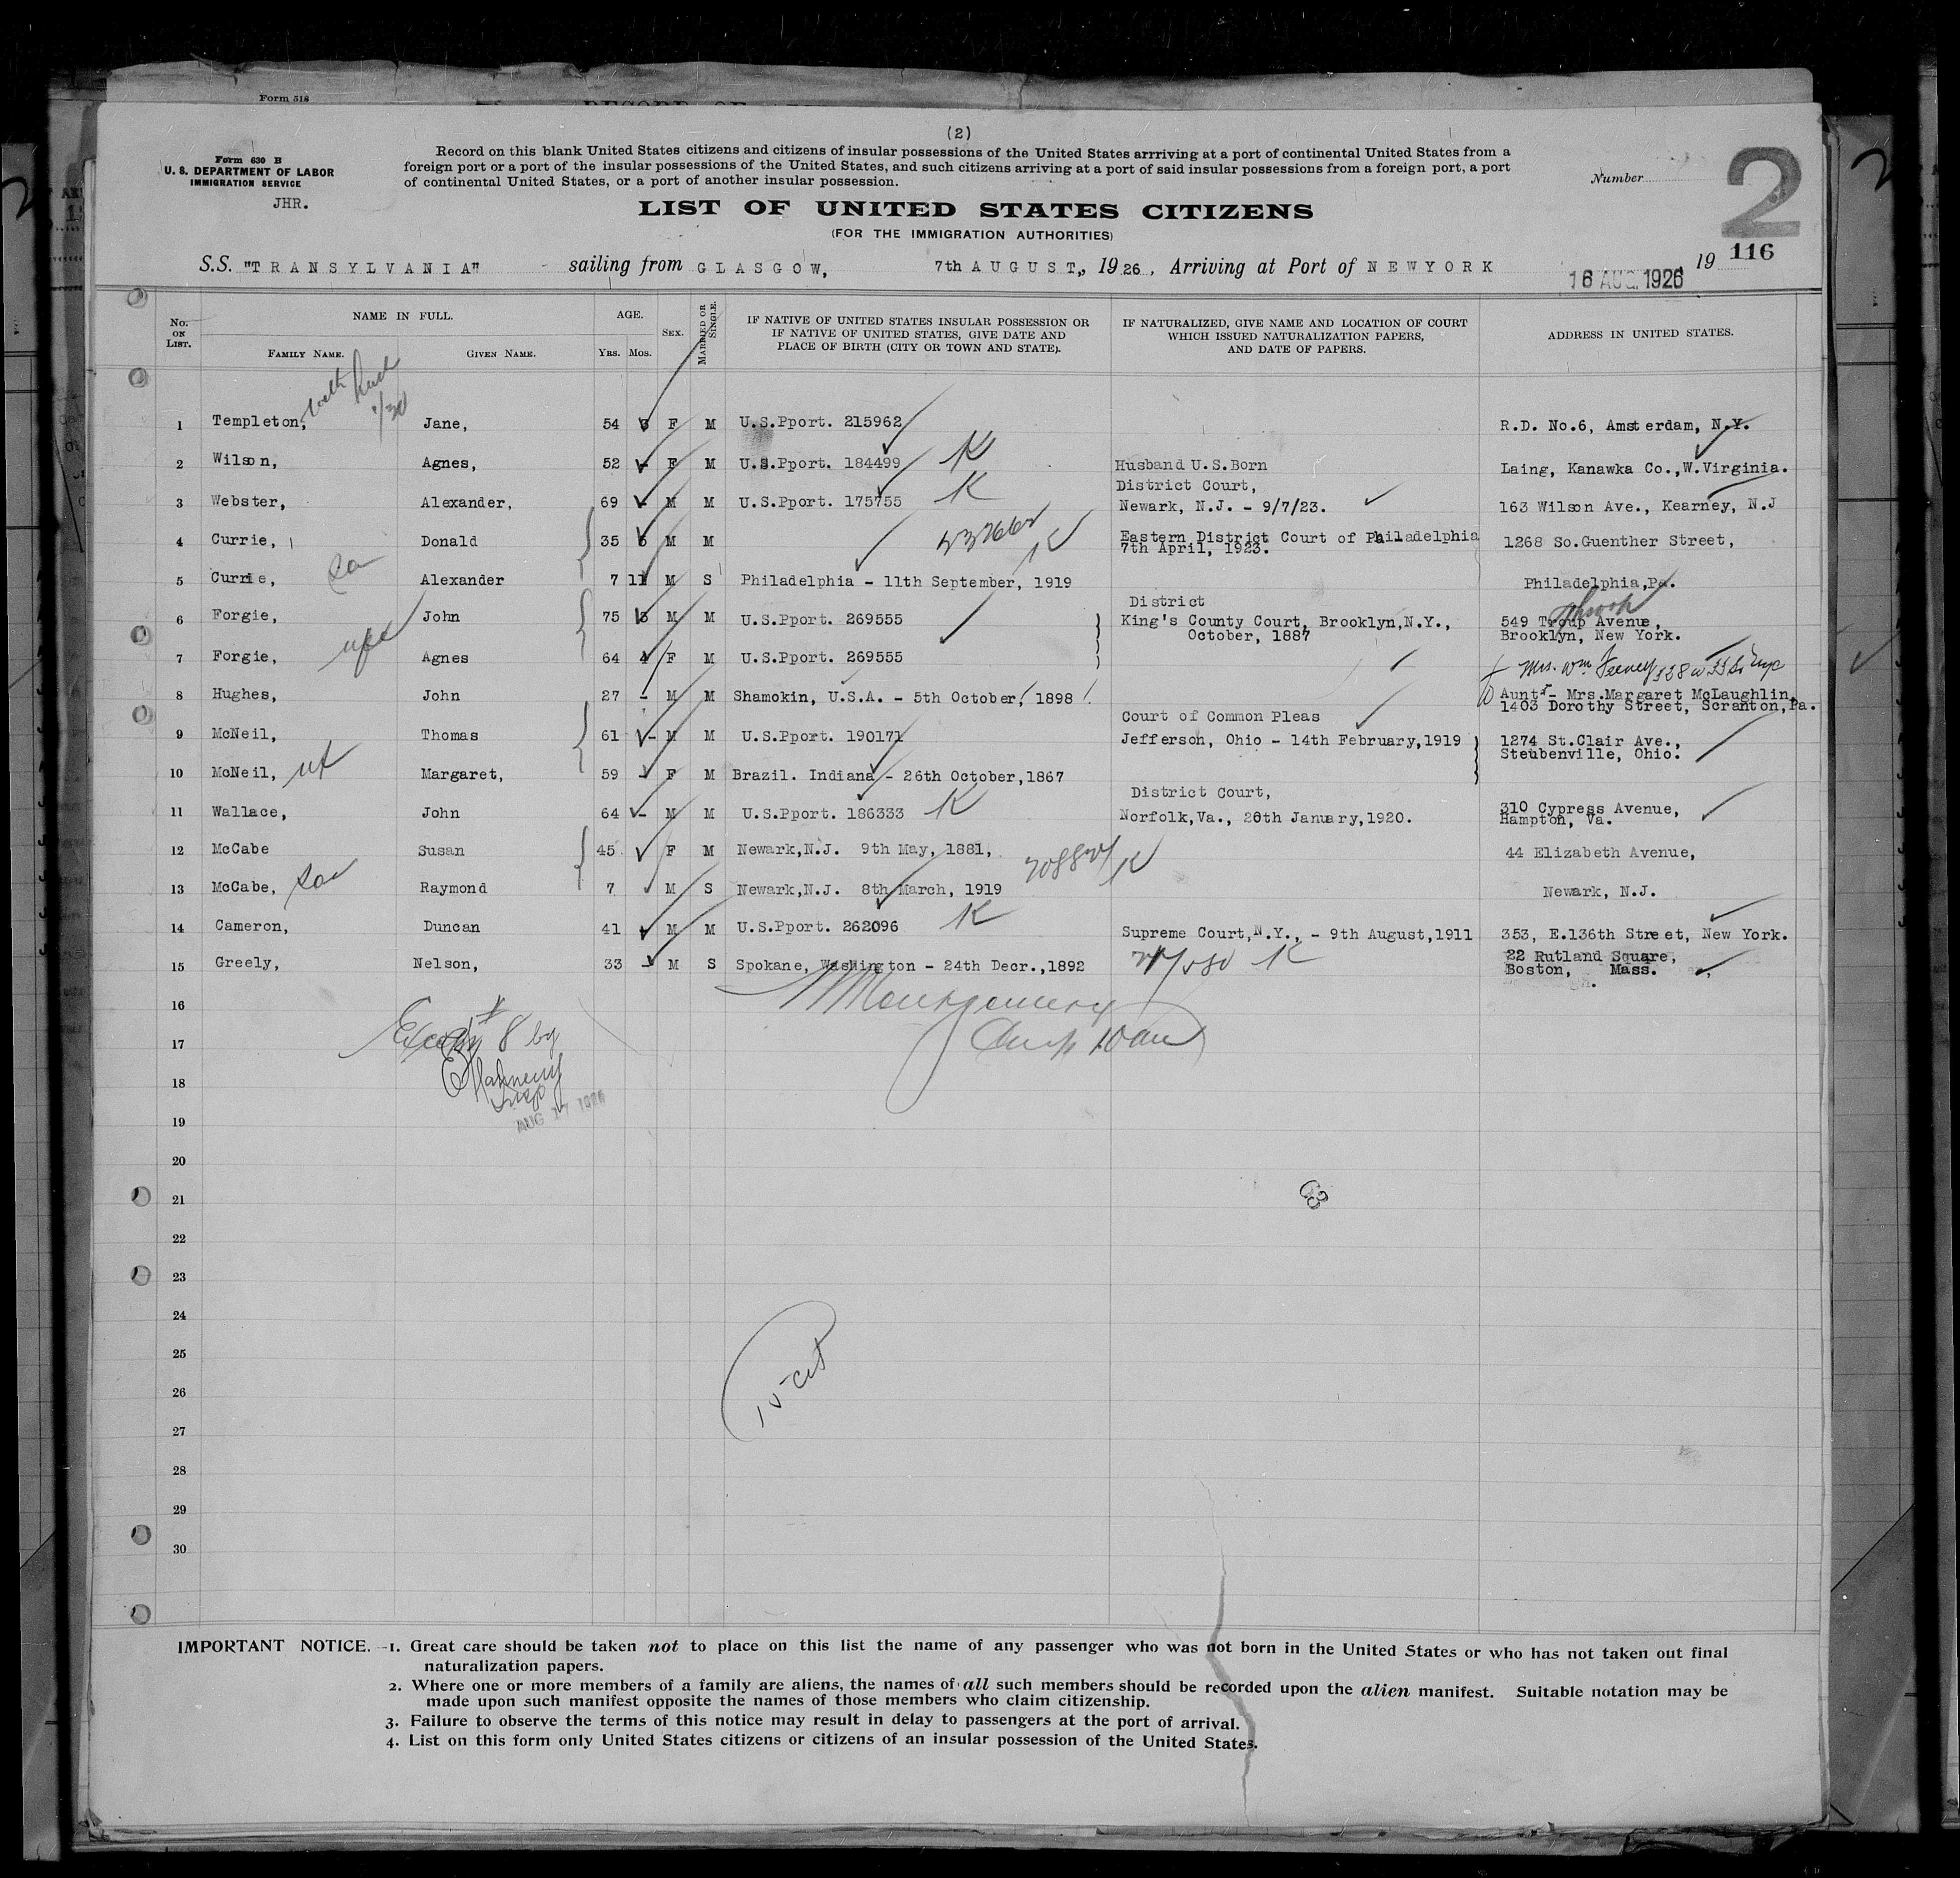 Form 518
(2)
Form 630 B
U. S. DEPARTMENT OF LABOR
IMMIGRATION SERVICE
JHR.
Record on this blank United States citizens and citizens of insular possessions of the United States arrriving at a port of continental United States from a
foreign port or a port of the insular possessions of the United States, and such citizens arriving at a port of said insular possessions from a foreign port, a port
of continental United States, or a port of another insular possession.
Number
2
LIST OF UNITED STATES CITIZENS
(FOR THE IMMIGRATION AUTHORITIES)
S.S. "TRANSYLVANIA" sailing from GLASGOW, 7th AUGUST, 1926, Arriving at Port of NEWYORK 16 AUG 1926 19 116
No. ON LIST.
NAME IN FULL.
FAMILY NAME. GIVEN NAME.
AGE.
Yrs. Mos.
SEX.
MARRIED OR SINGLE.
IF NATIVE OF UNITED STATES INSULAR POSSESSION OR
IF NATIVE OF UNITED STATES, GIVE DATE AND
PLACE OF BIRTH (CITY OR TOWN AND STATE).
IF NATURALIZED, GIVE NAME AND LOCATION OF COURT
WHICH ISSUED NATURALIZATION PAPERS,
AND DATE OF PAPERS.
ADDRESS IN UNITED STATES.
1/30
1 Templeton, Jane, 54 F M U.S.Pport. 215962 R.D. No.6, Amsterdam, N.Y.
2 Wilson, Agnes, 52 - F M U.S.Pport. 184499 K Husband U.S.Born Laing, Kanawka Co.,W.Virginia.
District Court,
3 Webster, Alexander, 69 - M M U.S.Pport. 175755 K Newark, N.J. - 9/7/23. 163 Wilson Ave., Kearney, N.J
4 Currie, Donald 35 M M K Eastern District Court of Philadelphia 1268 So.Guenther Street,
7th April, 1923.
5 Currie, son Alexander 7 11 M S Philadelphia - 11th September, 1919 Philadelphia,Pa.
District
6 Forgie, John 75 M M U.S.Pport. 269555 King's County Court, Brooklyn,N.Y., 549 Troup Avenue,
October, 1887 Brooklyn, New York.
7 Forgie, Agnes 64 4 F M U.S.Pport. 269555
Mrs. Wm. Feeney 538 W
8 Hughes, John 27 - M M Shamokin, U.S.A. - 5th October, 1898 Aunt - Mrs.Margaret McLaughlin,
1403 Dorothy Street, Scranton,Pa.
Court of Common Pleas
9 McNeil, Thomas 61 - M M U.S.Pport. 190171 Jefferson, Ohio - 14th February,1919 1274 St.Clair Ave.,
Steubenville, Ohio.
10 McNeil, Margaret, 59 - F M Brazil. Indiana - 26th October,1867
District Court,
11 Wallace, John 64 - M M U.S.Pport. 186333 K Norfolk,Va., 20th January,1920. 310 Cypress Avenue,
Hampton, Va.
12 McCabe Susan 45 F M Newark,N.J. 9th May, 1881, 44 Elizabeth Avenue,
13 McCabe, son Raymond 7 M S Newark,N.J. 8th March, 1919 K Newark, N.J.
14 Cameron, Duncan 41 M M U.S.Pport. 262096 K Supreme Court,N.Y., - 9th August,1911 353, E.136th Street, New York.
15 Greely, Nelson, 33 - M S Spokane, Washington - 24th Decr.,1892 K 22 Rutland Square,
Boston, Mass.
16
Montgomery
17
# 8 by
18
AUG 17 1926
19
20
21
22
23
24
25
26
27
28
29
30
IMPORTANT NOTICE.--1. Great care should be taken not to place on this list the name of any passenger who was not born in the United States or who has not taken out final
naturalization papers.
2. Where one or more members of a family are aliens, the names of all such members should be recorded upon the alien manifest. Suitable notation may be
made upon such manifest opposite the names of those members who claim citizenship.
3. Failure to observe the terms of this notice may result in delay to passengers at the port of arrival.
4. List on this form only United States citizens or citizens of an insular possession of the United States.